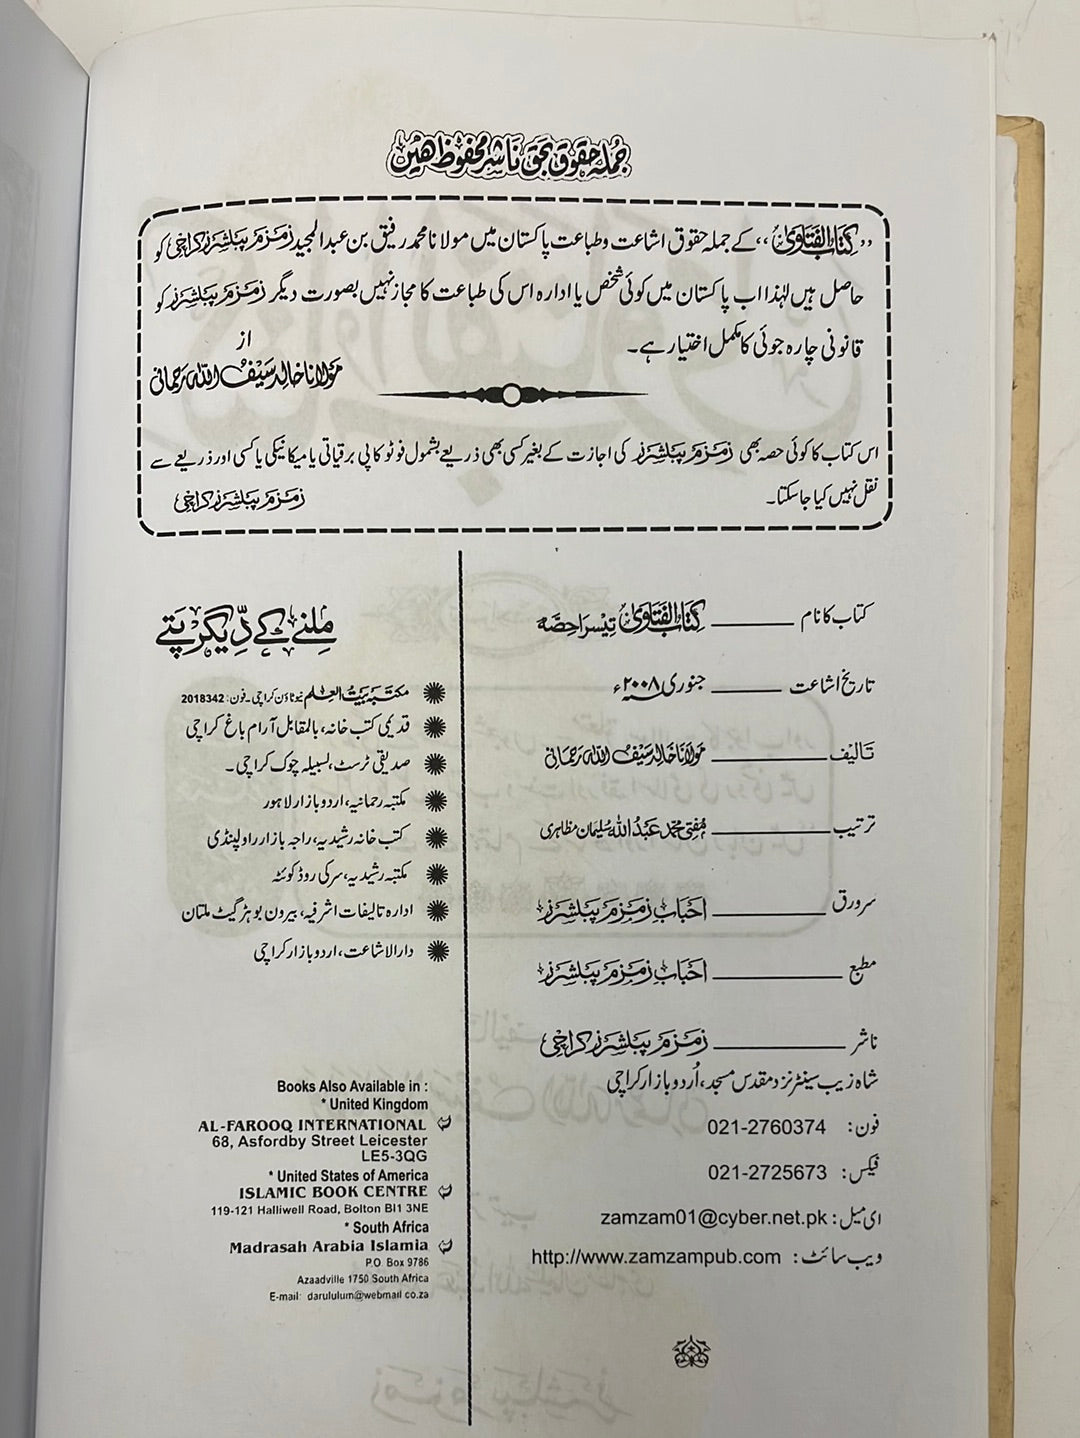 جملہ حقوق بحق ناشر محفوظ ھیں
”کتاب الفتاویٰ“ کے جملہ حقوق اشاعت و طباعت پاکستان میں مولانا محمد رفیق بن عبدالمجید زمزم پبلشرز کراچی کو
حاصل ہیں لہٰذا اب پاکستان میں کوئی شخص یا ادارہ اس کی طباعت کا مجاز نہیں بصورت دیگر زمزم پبلشرز کو
قانونی چارہ جوئی کا مکمل اختیار ہے۔
از
مولانا خالد سیف اللہ رحمانی
اس کتاب کا کوئی حصہ بھی زمزم پبلشرز کی اجازت کے بغیر کسی بھی ذریعے بشمول فوٹو کاپی برقیاتی یا میکانیکی یا کسی اور ذریعے سے
نقل نہیں کیا جا سکتا۔
زمزم پبلشرز کراچی
کتاب کا نام ــــــ کتاب الفتاویٰ تیسرا حصّہ
تاریخ اشاعت ــــــ جنوری ۲۰۰۸ء
تالیف ــــــ مولانا خالد سیف اللہ رحمانی
ترتیب ــــــ مفتی محمد عبداللہ سلیمان مظاہری
سرورق ــــــ احباب زمزم پبلشرز
مطبع ــــــ احباب زمزم پبلشرز
ناشر ــــــ زمزم پبلشرز کراچی
شاہ زیب سینٹر نزد مقدس مسجد، اُردو بازار کراچی
فون: 021-2760374
فیکس: 021-2725673
ای میل: zamzam01@cyber.net.pk
ویب سائٹ: http://www.zamzampub.com
ملنے کے دیگر پتے
مکتبہ بیت العلم نیو ٹاؤن کراچی۔ فون: 2018342
قدیمی کتب خانہ، بالمقابل آرام باغ کراچی
صدیقی ٹرسٹ، لسبیلہ چوک کراچی۔
مکتبہ رحمانیہ، اردو بازار لاہور
کتب خانہ رشیدیہ، راجہ بازار راولپنڈی
مکتبہ رشیدیہ، سرکی روڈ کوئٹہ
ادارہ تالیفات اشرفیہ، بیرون بوہڑ گیٹ ملتان
دارالاشاعت، اردو بازار کراچی
Books Also Available in :
* United Kingdom
AL-FAROOQ INTERNATIONAL
68, Asfordby Street Leicester
LE5-3QG
* United States of America
ISLAMIC BOOK CENTRE
119-121 Halliwell Road, Bolton Bl1 3NE
* South Africa
Madrasah Arabia Islamia
P.O. Box 9786
Azaadville 1750 South Africa
E-mail: darululum@webmail.co.za